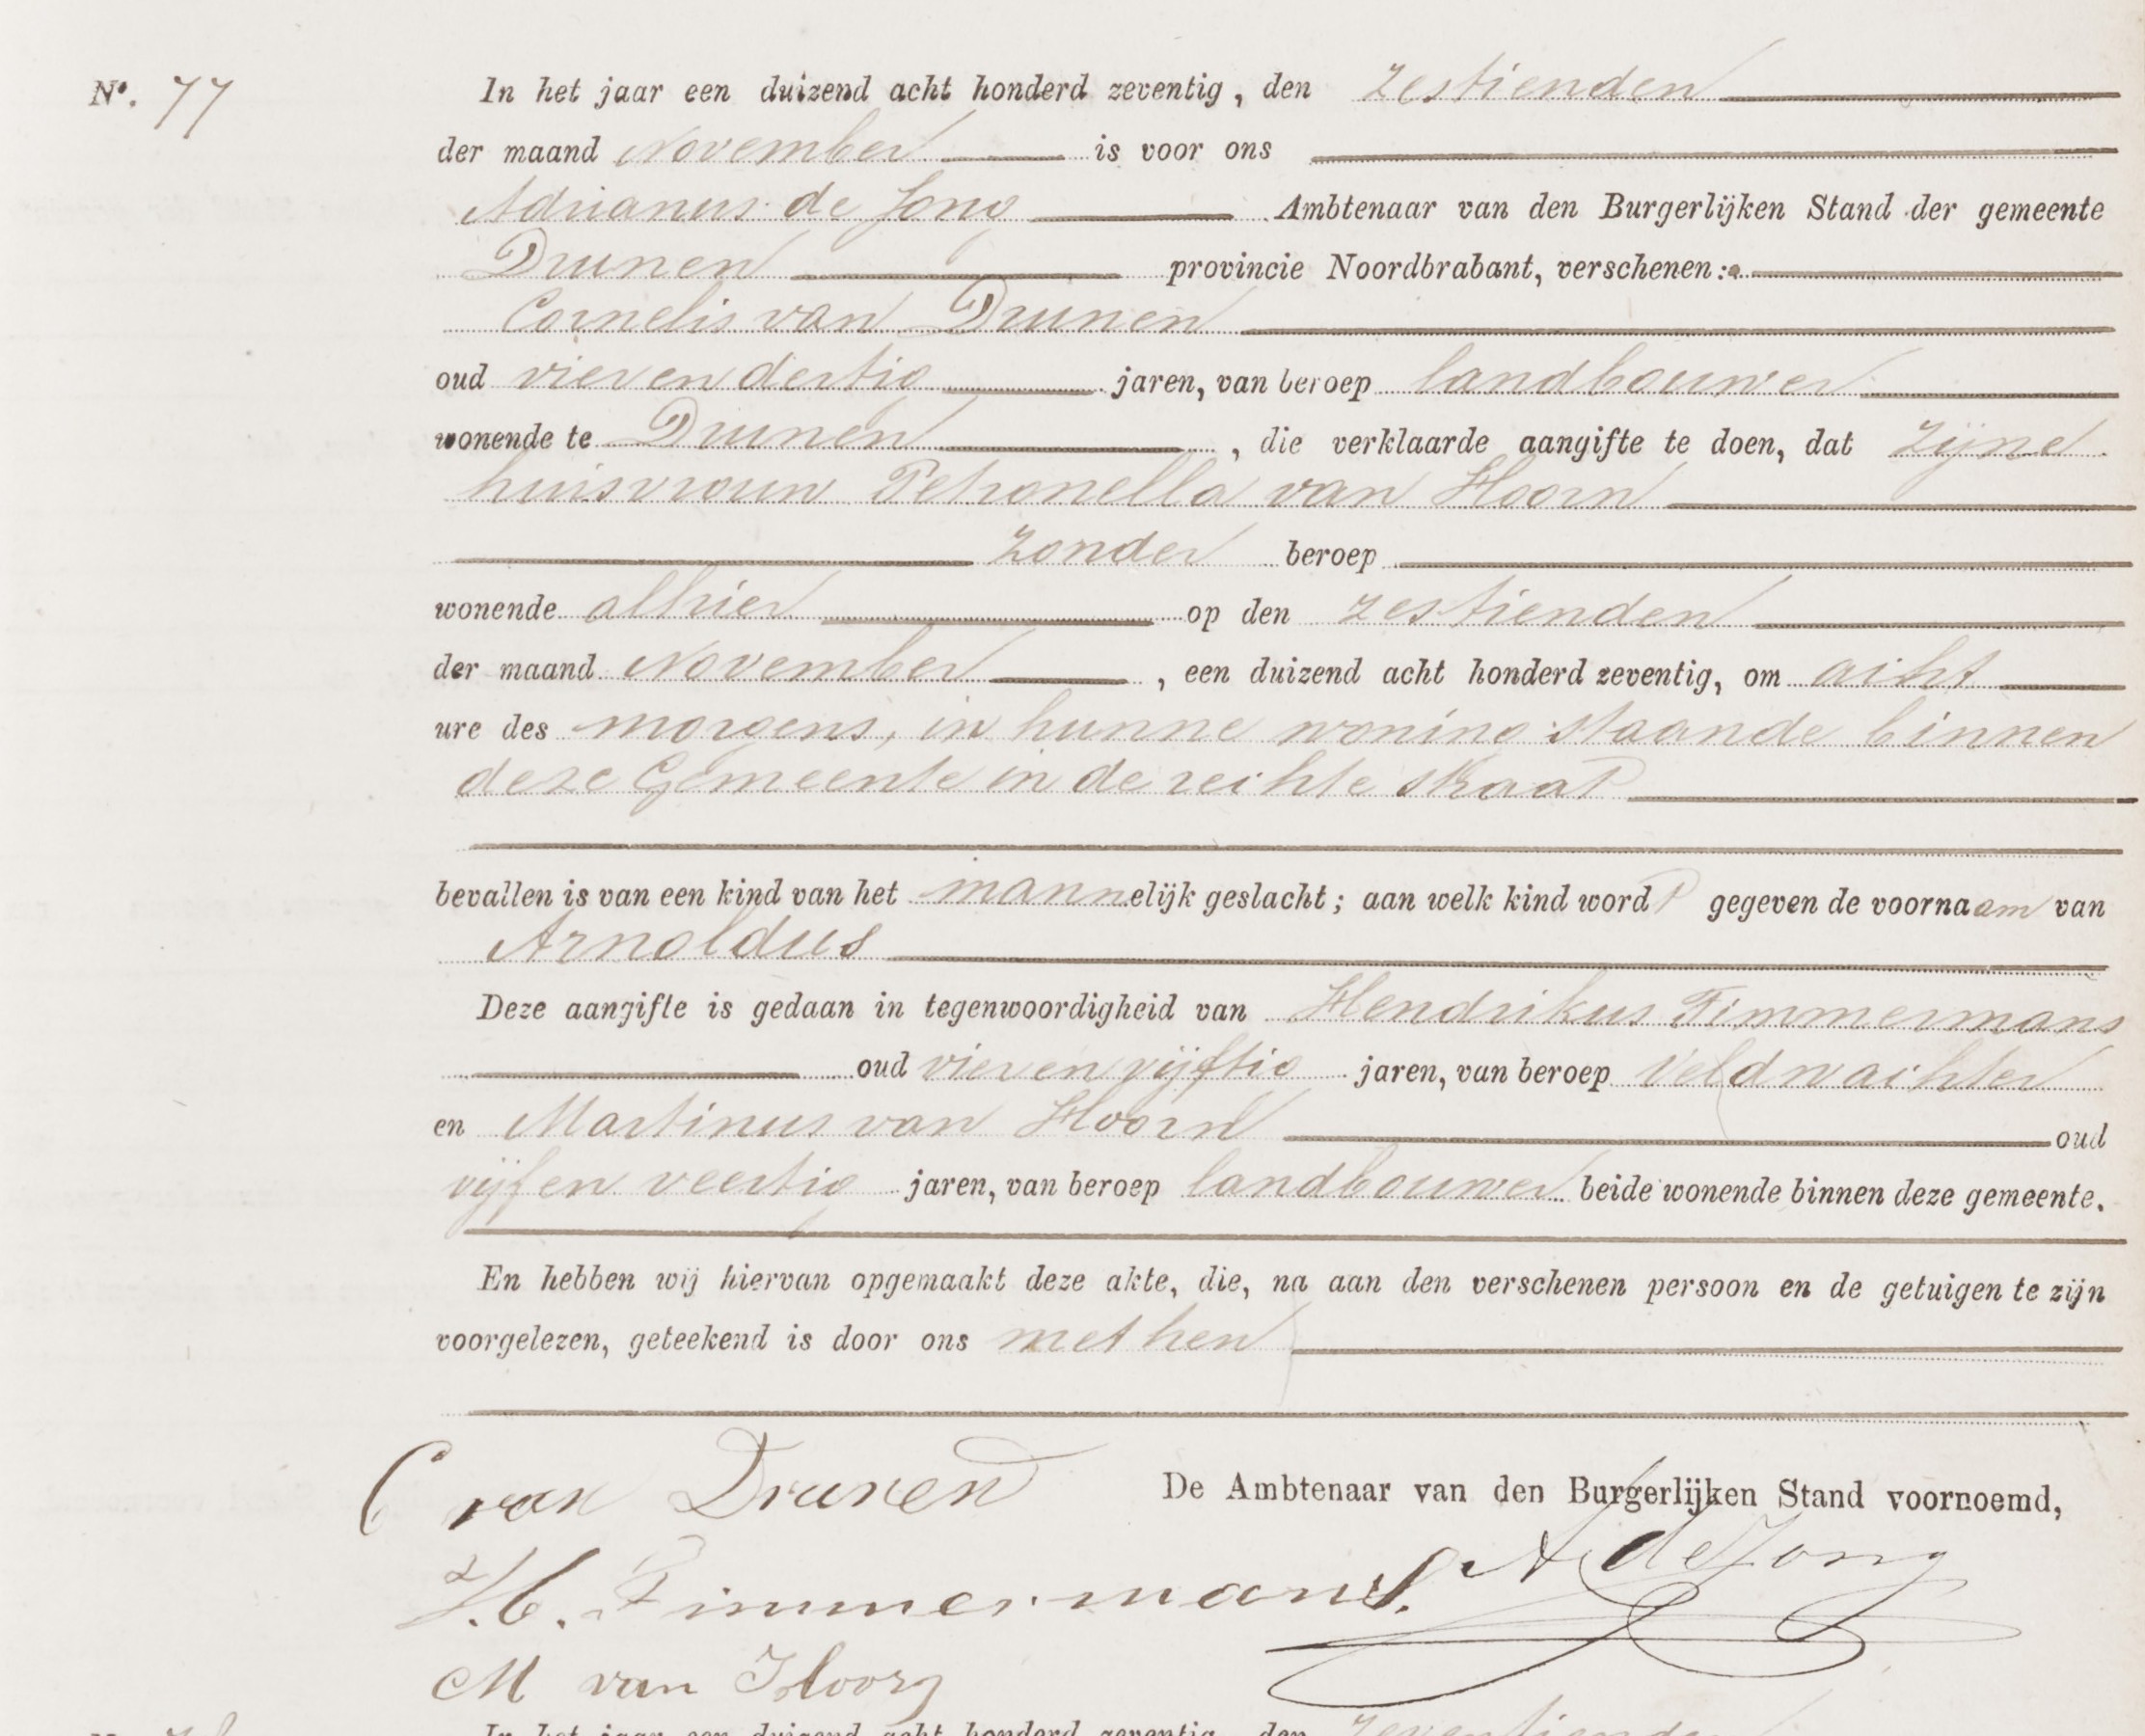 Nº. 77
In het jaar een duizend acht honderd zeventig, den zestienden
der maand November is voor ons
Adrianus de Jong Ambtenaar van den Burgerlijken Stand der gemeente
Drunen provincie Noordbrabant, verschenen:
Cornelis van Drunen
oud vier en dertig jaren, van beroep landbouwer
wonende te Drunen, die verklaarde aangifte te doen, dat zijne
huisvrouw Petronella van Hoorn
zonder beroep
wonende alhier op den zestienden
der maand November, een duizend acht honderd zeventig, om acht
ure des morgens, in hunne woning staande binnen
deze Gemeente in de rechte straat
bevallen is van een kind van het mannelijk geslacht; aan welk kind wordt gegeven de voornaam van
Arnoldus
Deze aangifte is gedaan in tegenwoordigheid van Hendrikus Timmermans
oud vier en vijftig jaren, van beroep veldwachter
en Martinus van Hoorn oud
vijf en veertig jaren, van beroep landbouwer beide wonende binnen deze gemeente.
En hebben wij hiervan opgemaakt deze akte, die, na aan den verschenen persoon en de getuigen te zijn
voorgelezen, geteekend is door ons met hen
C van Drunen De Ambtenaar van den Burgerlijken Stand voornoemd,
H. Timmermans. A de Jong
M van Hoorn
In het jaar een duizend acht honderd zeventig, den zeventienden